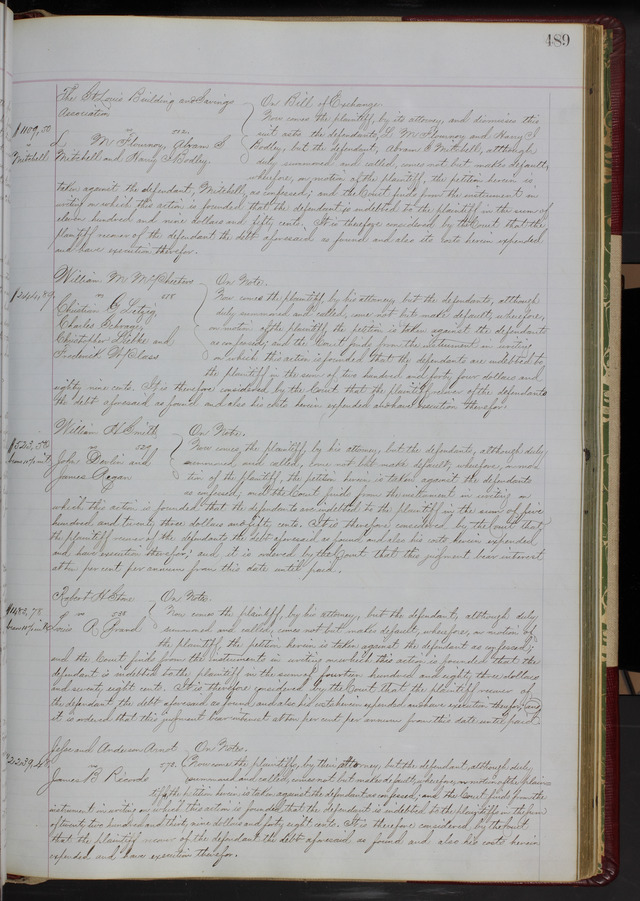 489
The St Louis Building and Savings
Association
$1109,50
vs 202
L M Flournoy, Abram S
Mitchell
Mitchell and Harry I Bodley.
On Bill of Exchange.
Now comes the plaintiff, by its attorney, and dismisses this
suit as to the defendants, L. M Flournoy and Harry I
Bodley, but the defendant, Abram S Mitchell, although
duly summoned and called, comes not but makes default,
wherefore, on motion of the plaintiff, the petition herein is
taken against the defendant, Mitchell, as confessed; and the Court finds from the instrument in
writing on which this action is founded that the defendant is indebted to the plaintiff in the sum of
eleven hundred and nine dollars and fifty cents. It is therefore considered by the Court that the
plaintiff recover of the defendant the debt aforesaid as found and also its costs herein expended
and have execution therefor.
William M McPheeters
$244,89.
vs
Christian G
Charles
Christopher and
Frederick W Class
On Note.
Now comes the plaintiff, by his attorney, but the defendants, although
duly summoned and called, come not but make default, wherefore,
on motion of the plaintiff, the petition is taken against the defendants
as confessed; and the Court finds from the instrument in writing
on which this action is founded that the defendants are indebted to
the plaintiff in the sum of two hundred and forty four dollars and
eighty nine cents. It is therefore considered by the Court that the plaintiff recover of the defendants
the debt aforesaid as found and also his costs herein expended and have execution therefor.
William H Smith
$523,80
vs
John Devlin and
James Regan
On Note.
Now comes, the plaintiff by his attorney, but the defendants, although duly
summoned, and called, come not but make default, wherefore, on mo
tion of the plaintiff, the petition herein is taken against the defendants
as confessed; and the Court finds from the instrument in writing on
which this action is founded that the defendants are indebted to the plaintiff in the sum of five
hundred and twenty three dollars and eighty cents. It is therefore considered by the Court that
the plaintiff recover of the defendants the debt aforesaid as found and also his costs herein expended
and have execution therefor; and it is ordered by the Court that this judgment bear interest
at ten per cent per annum from this date until paid.
Robert H Stone
$1483,78
vs 238
Louis A Brand
On Note.
Now comes the plaintiff, by his attorney, but the defendant, although duly
summoned and called, comes not but makes default, wherefore, on motion of
the plaintiff, the petition herein is taken against the defendant as confessed;
and the Court finds from the instruments in writing on which this action is founded that the
defendant is indebted to the plaintiff in the sum of fourteen hundred and eighty three dollars
and seventy eight cents. It is therefore considered by the Court that the plaintiff recover of
the defendant the debt aforesaid as found and also his costs herein expended and have execution therefor; and
it is ordered that this judgment bear interest at ten per cent per annum from this date until paid.
Jesse and Anderson Arnot
$2239,48
vs 270.
James B Ricords
On Notes.
Now come the plaintiffs, by their attorney, but the defendant, although duly
summoned and called, comes not but makes default, wherefore, on motion of the plain-
tiffs, the petition herein is taken against the defendant as confessed; and the Court finds from the
instrument in writing on which this action is founded that the defendant is indebted to the plaintiffs in the sum
of twenty two hundred and thirty nine dollars and forty eight cents. It is therefore considered by the Court
that the plaintiffs recover of the defendant the debt aforesaid, as found and also his costs herein
expended and have execution therefor.